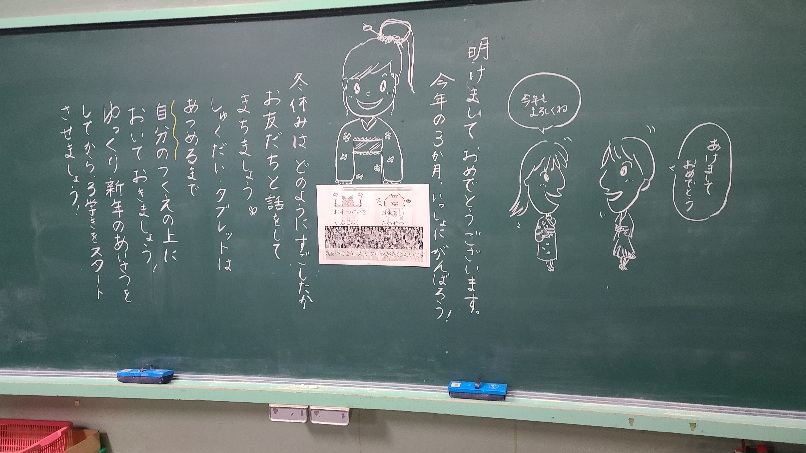 あけまして
おめでとう
今年も
よろしくね
明けましておめでとうございます。
今年の3か月、いっしょにがんばろう!
冬休みは どのようにすごしたか
お友だちと話をして
まちましょう
しゅくだい タブレットは
あつめるまで
自分のつくえの上に
おいておきましょう!
ゆっくり 新年のあいさつを
してから 3学きをスタート
させましょう!